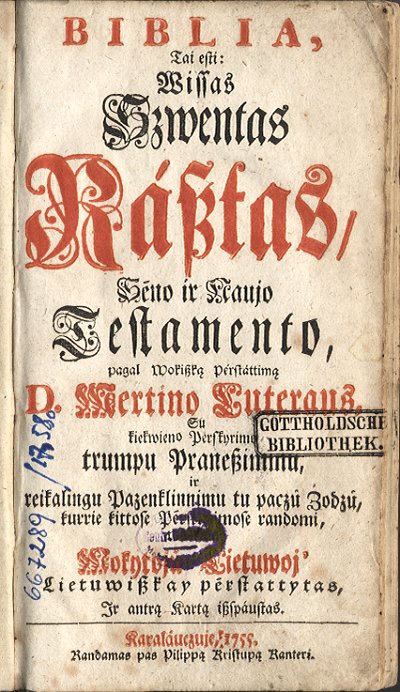 BIBLIA,
Tai esti:
Wissas
Szwentas
Rásztas/
Séno ir Naujo
Testamento,
pagal Wokiszką Pérstattimą
D. Mertino Luteraus,
Su
kiekwieno Pérskyrimo
trumpu Praneszimmu,
ir
reikalingu Pazenklinnimu tu paczů Zodzů,
kurrie kittose randomi,
Lietuwoj'
Lietuwiszkay pérstattytas,
Ir antrą Kartą iszspáustas.
Karaláuczuje, 1755.
Randamas pas Pilippą Kristupą Kanterį.
GOTTHOLDSCHE
BIBLIOTHEK.
667289